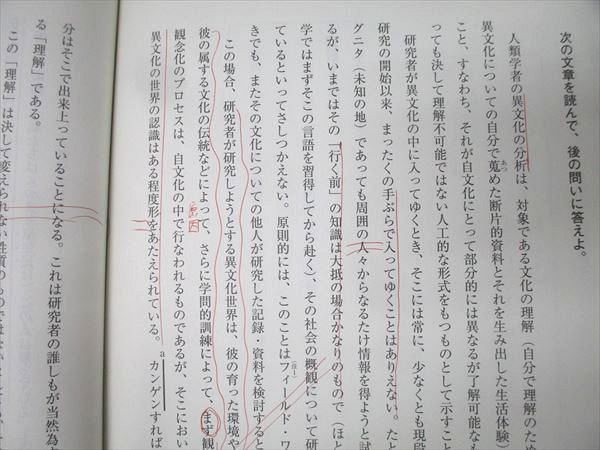 次の文章を読んで、後の問いに答えよ。
人類学者の異文化の分析は、対象である文化の理解(自分で理解のため
異文化についての自分で蒐めた断片的資料とそれを生み出した生活体験)
あつ
こと、すなわち、それが自文化にとって部分的には異なるが了解可能なも
っても決して理解不可能ではない人工的な形式をもつものとして示すこと
研究者が異文化の中に入ってゆくとき、そこには常に、少なくとも現段
研究の開始以来、まったくの手ぶらで入ってゆくことはありえない。たと
グニタ(未知の地)であっても周囲の人々からなるたけ情報を得ようと試
るが、いまではその「行く前」の知識は大抵の場合かなりのもので(ほと
学ではまずそこの言語を習得してから赴く)、その社会の概観について研
ているといってさしつかえない。原則的には、このことはフィールド・ワ
(注1)
きでも、またその文化についての他人が研究した記録・資料を検討すると
この場合、研究者が研究しようとする異文化世界は、彼の育った環境や
彼の属する文化の伝統などによって、さらに学問的訓練によって、まず観
観念化のプロセスは、自文化の中で行なわれるものであるが、そこにおい
異文化の世界の認識はある程度形をあたえられている。
a
カンゲンすれば
分はそこで出来上っていることになる。これは研究者の誰しもが当然為
る「理解」である。
この「理解」は決して変えられない性質のものではないとしても、